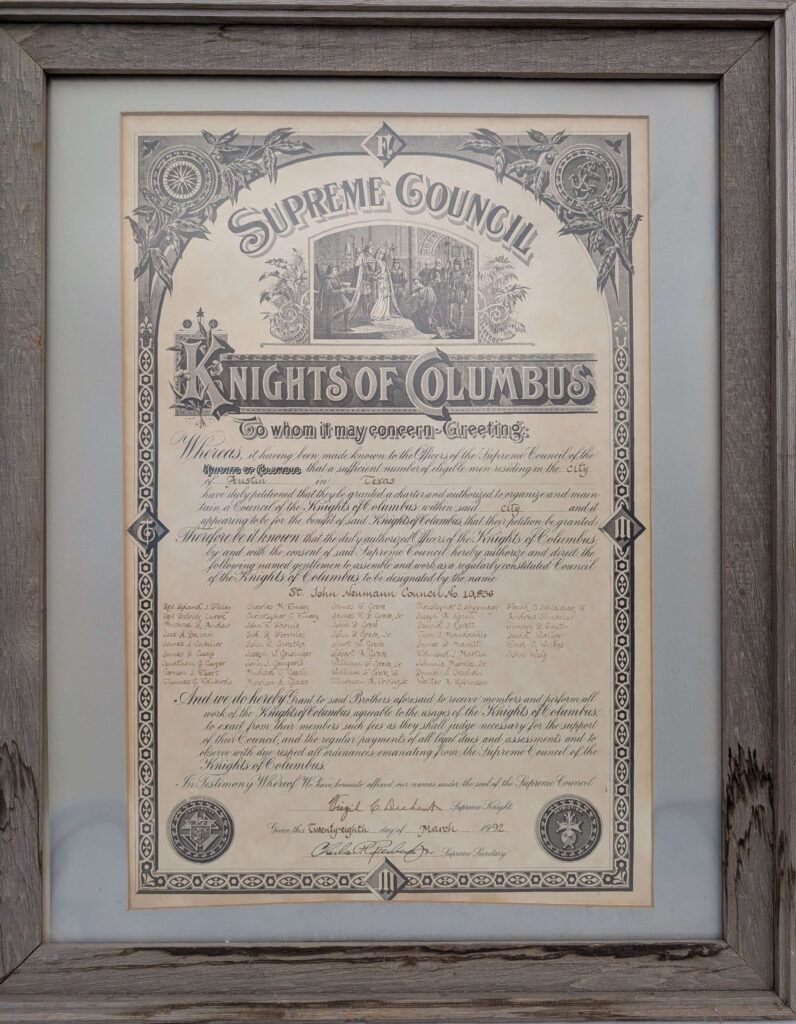 SUPREME COUNCIL
KNIGHTS OF COLUMBUS
To whom it may concern - Greeting:
Whereas, it having been made known to the Officers of the Supreme Council of the
KNIGHTS OF COLUMBUS that a sufficient number of eligible men residing in the city
of Austin in Texas
have duly petitioned that they be granted a charter and authorized to organize and main
tain a Council of the Knights of Columbus within said city and it
appearing to be for the benefit of said Knights of Columbus, that their petition be granted:
Therefore be it known that the duly authorized Officers of the Knights of Columbus,
by and with the consent of said Supreme Council hereby authorize and direct the
following named gentlemen to assemble and work as a regularly constituted Council
of the Knights of Columbus to be designated by the name
St. John Neumann Council No. 10,836
Charles N. Emery James E. Grove
Christopher C. Emery
John E. Farnie John D. Grove Donald J. Lyddt
Jose A. Bazan
James J. Cuvelier John G. Garstka Kurt W. Grove James F. Manitt Earl C. Wilkes
James D. Cooke Joseph W. Geisinger Robert A. Grove Edmund J. Martin John Wolf
Jonathan G. Cooper William G. Grove, Sr. Johnnie Morales, Sr.
Vernon J. Ebert William F. Grove, III
Thomas G. Edwards Marion A. Glass Walter A. Robinson
And we do hereby Grant to said Brothers aforesaid, to receive members and perform all
work of the Knights of Columbus agreeable to the usages of the Knights of Columbus,
to exact from their members such fees as they shall judge necessary for the support
of their Council, and the regular payments of all legal dues and assessments and to
observe with due respect all ordinances emanating from the Supreme Council of the
Knights of Columbus.
In Testimony Whereof We have hereunto affixed our names under the seal of the Supreme Council
Virgil C. Dechant Supreme Knight
Given this Twenty-eighth day of March 1992
Supreme Secretary